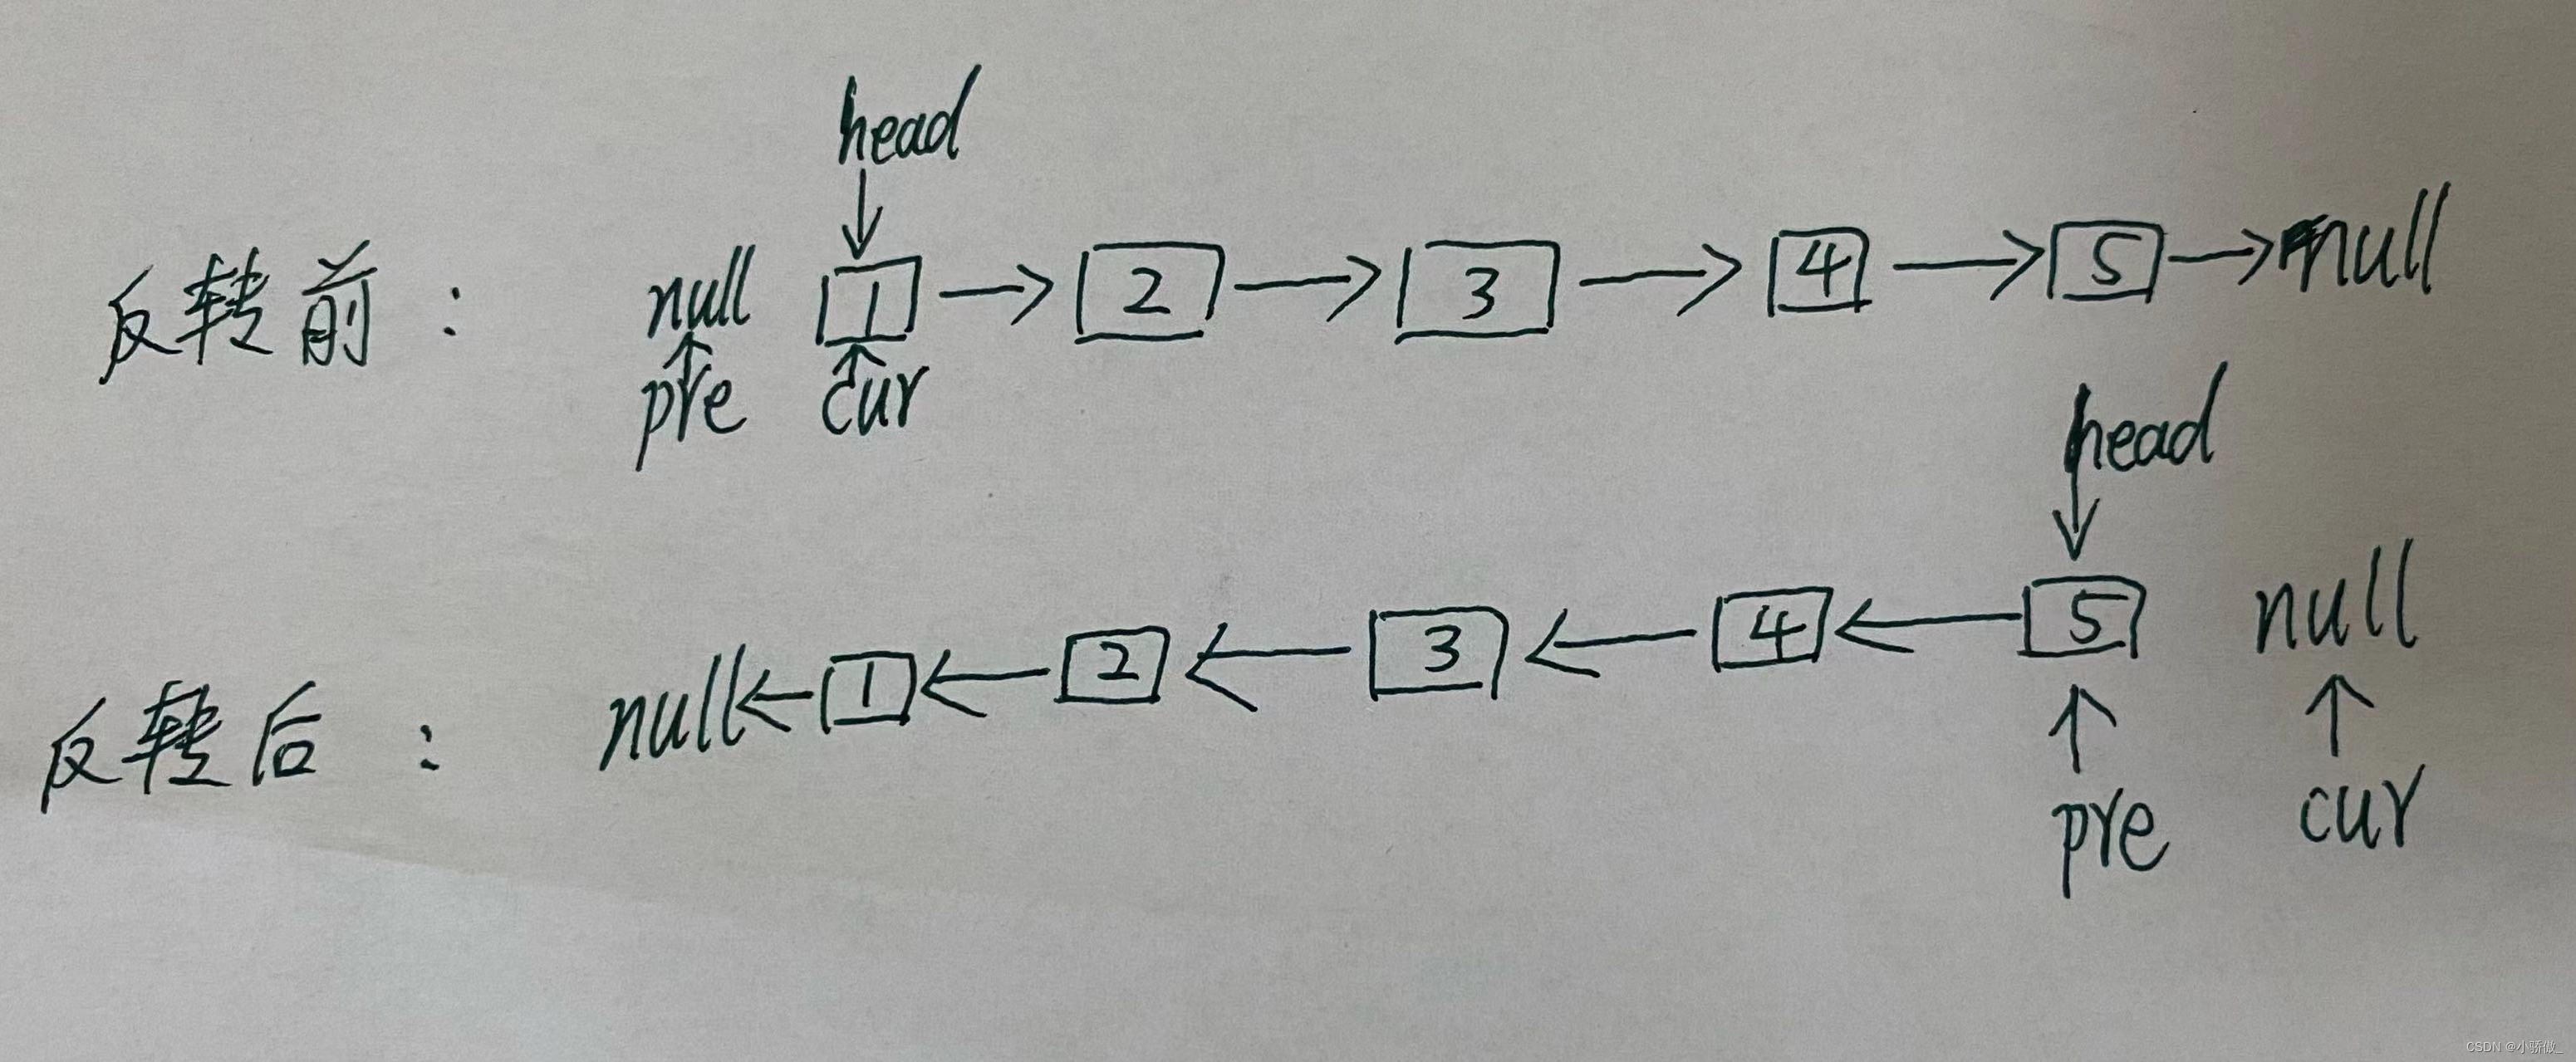 head
反转前： null 1 → 2 → 3 → 4 → 5 → null
pre cur
head
反转后： null ← 1 ← 2 ← 3 ← 4 ← 5 null
pre cur
CSDN @小骄傲